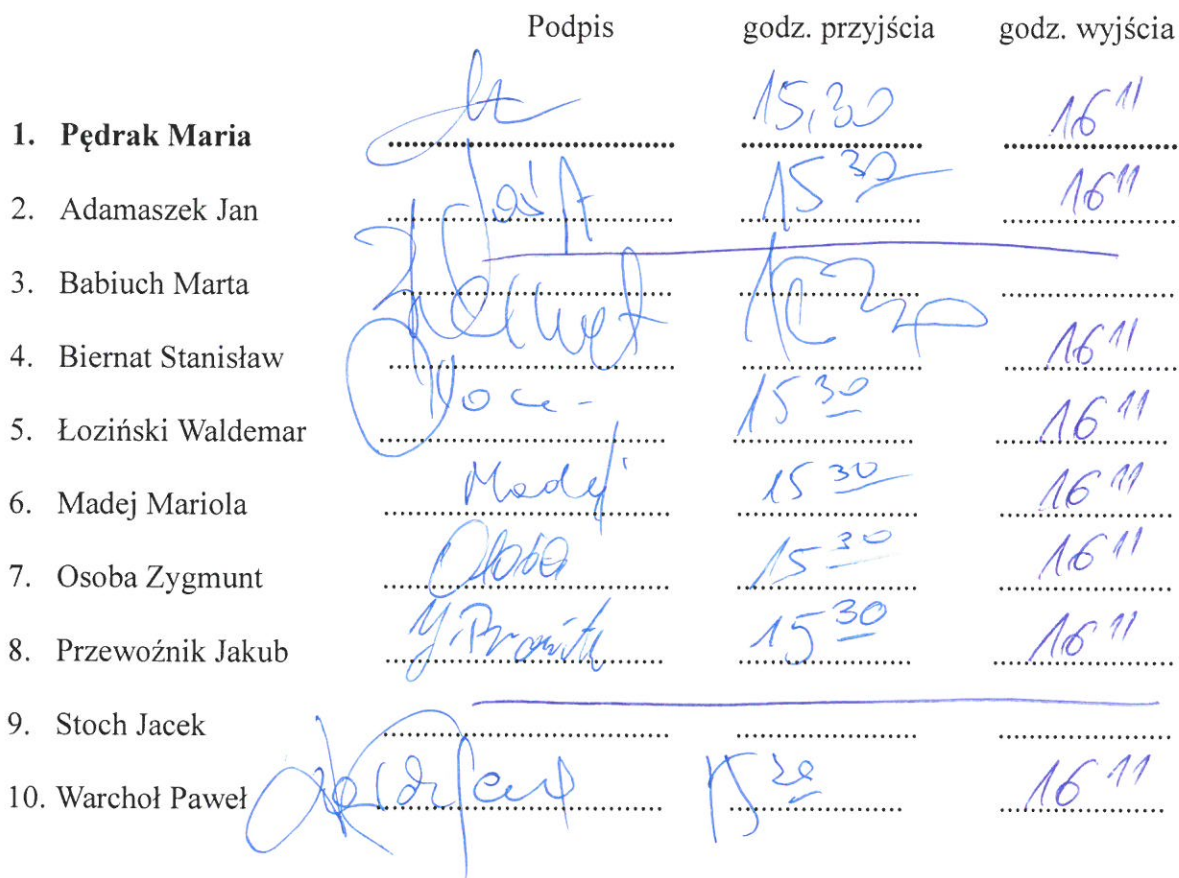 Podpis godz. przyjścia godz. wyjścia
1. Pędrak Maria 15,30 16 11
2. Adamaszek Jan 15 30 16 11
3. Babiuch Marta
4. Biernat Stanisław 16 11
5. Łoziński Waldemar 15 30 16 11
6. Madej Mariola Madej 15 30 16 11
7. Osoba Zygmunt Osoba 15 30 16 11
8. Przewoźnik Jakub 15 30 16 11
9. Stoch Jacek
10. Warchoł Paweł 15 30 16 11